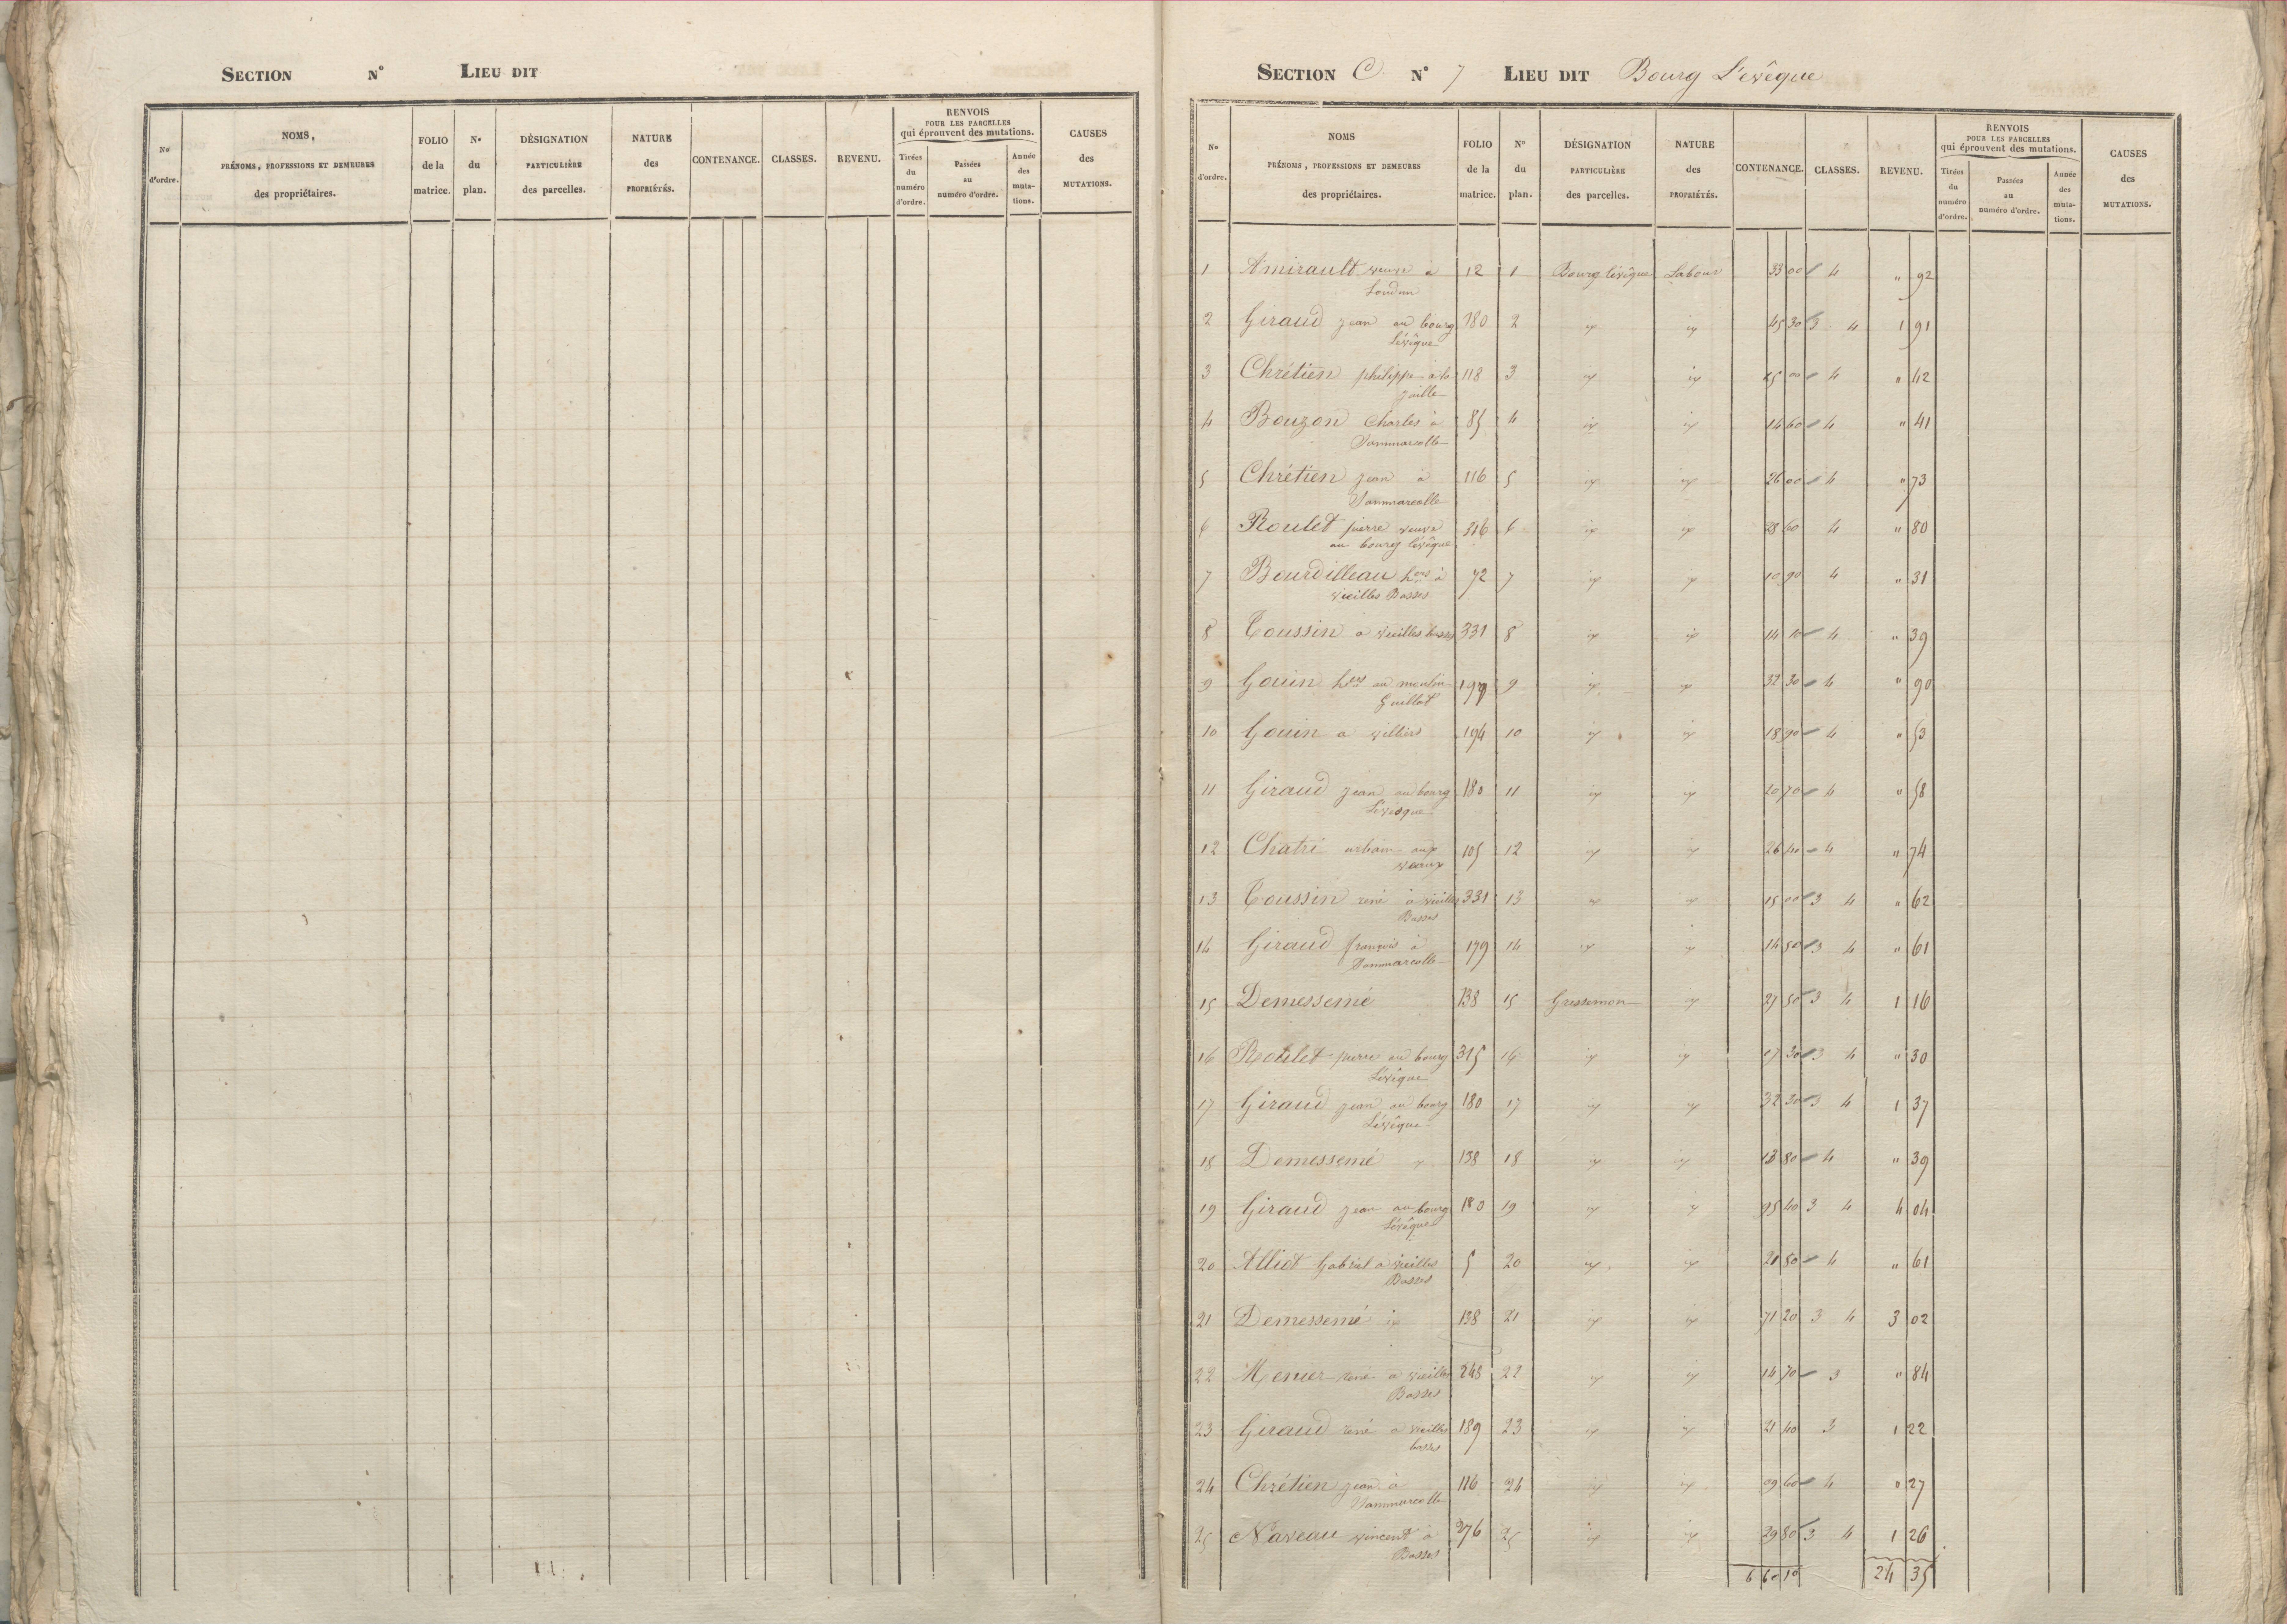 SECTION N° LIEU DIT
No d'ordre. NOMS, PRÉNOMS, PROFESSIONS ET DEMEURES des propriétaires. FOLIO de la matrice. No du plan. DÉSIGNATION PARTICULIÈRE des parcelles. NATURE des PROPRIÉTÉS. CONTENANCE. CLASSES. REVENU. RENVOIS POUR LES PARCELLES qui éprouvent des mutations. Tirées du numéro d'ordre. Passées au numéro d'ordre. Année des mutations. CAUSES des MUTATIONS.
SECTION C. N° 7 LIEU DIT Bourg L'evêque
No d'ordre. NOMS PRÉNOMS, PROFESSIONS ET DEMEURES des propriétaires. FOLIO de la matrice. N° du plan. DÉSIGNATION PARTICULIÈRE des parcelles. NATURE des PROPRIÉTÉS. CONTENANCE. CLASSES. REVENU. RENVOIS POUR LES PARCELLES qui éprouvent des mutations. Tirées du numéro d'ordre. Passées au numéro d'ordre. Année des mutations. CAUSES des MUTATIONS.
1 Amirault veuve à 12 1 Bourg lévêque Labour 33 00 4 " 92
Loudun
2 Giraud jean au bourg 180 2 id id 45 30 3 4 1 91
Lévêque
3 Chrétien philippe à la 118 3 id id 15 00 4 " 42
jaille
4 Bouzon Charles à 85 4 id id 14 60 4 " 41
Sammarcolle
5 Chrétien jean à 116 5 id id 26 00 4 " 73
Sammarcolle
6 Roulet pierre veuve 316 6 id id 28 60 4 " 80
au bourg lévêque
7 Bourdilleau hers à 72 7 id id 10 90 4 " 31
vieilles Basses
8 Toussin a vieilles basses 331 8 id id 14 10 4 " 39
9 Gouin hers au moulin 197 9 id id 32 30 4 " 90
Guillot
10 Gouin a villiers 194 10 id id 18 90 4 " 53
11 Giraud jean au bourg 180 11 id id 20 70 4 " 58
Lévêque
12 Chatri urbain aux 105 12 id id 26 40 4 " 74
veaux
13 Toussin rené à vieilles 331 13 id id 15 00 3 4 " 62
Basses
14 Giraud françois à 179 14 id id 14 50 3 4 " 61
Sammarcolle
15 Demessemé 138 15 Gressimon id 27 50 3 4 1 16
16 Roulet pierre au bourg 315 16 id id 07 30 3 4 " 30
Lévêque
17 Giraud jean au bourg 180 17 id id 32 30 3 4 1 37
Lévêque
18 Demessemé 138 18 id id 13 80 4 " 39
19 Giraud jean au bourg 180 19 id id 95 40 3 4 4 04
Lévêque
20 Alliot Gabriel a vieilles 5 20 id id 21 50 4 " 61
Basses
21 Demessemé id 138 21 id id 71 20 3 4 3 02
22 Menier rené a vieilles 248 22 id id 14 70 3 " 84
Basses
23 Giraud rené a vieilles 189 23 id id 21 40 3 1 22
basses
24 Chrétien jean à 116 24 id id 09 60 4 " 27
Sammarcolle
25 Naveau vincent à 276 25 id id 29 80 3 4 1 26
Basses
6 60 10 24 35